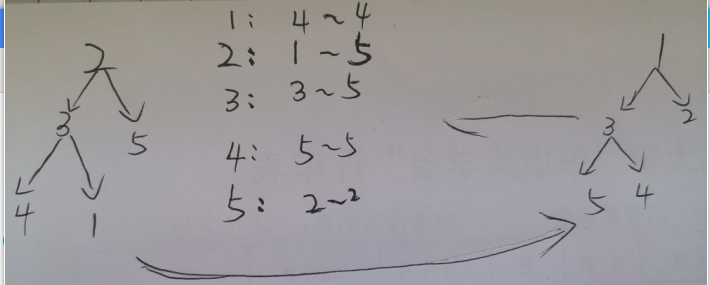 2
3
5
4
1
1: 4~4
2: 1~5
3: 3~5
4: 5~5
5: 2~2
1
3
2
5
4